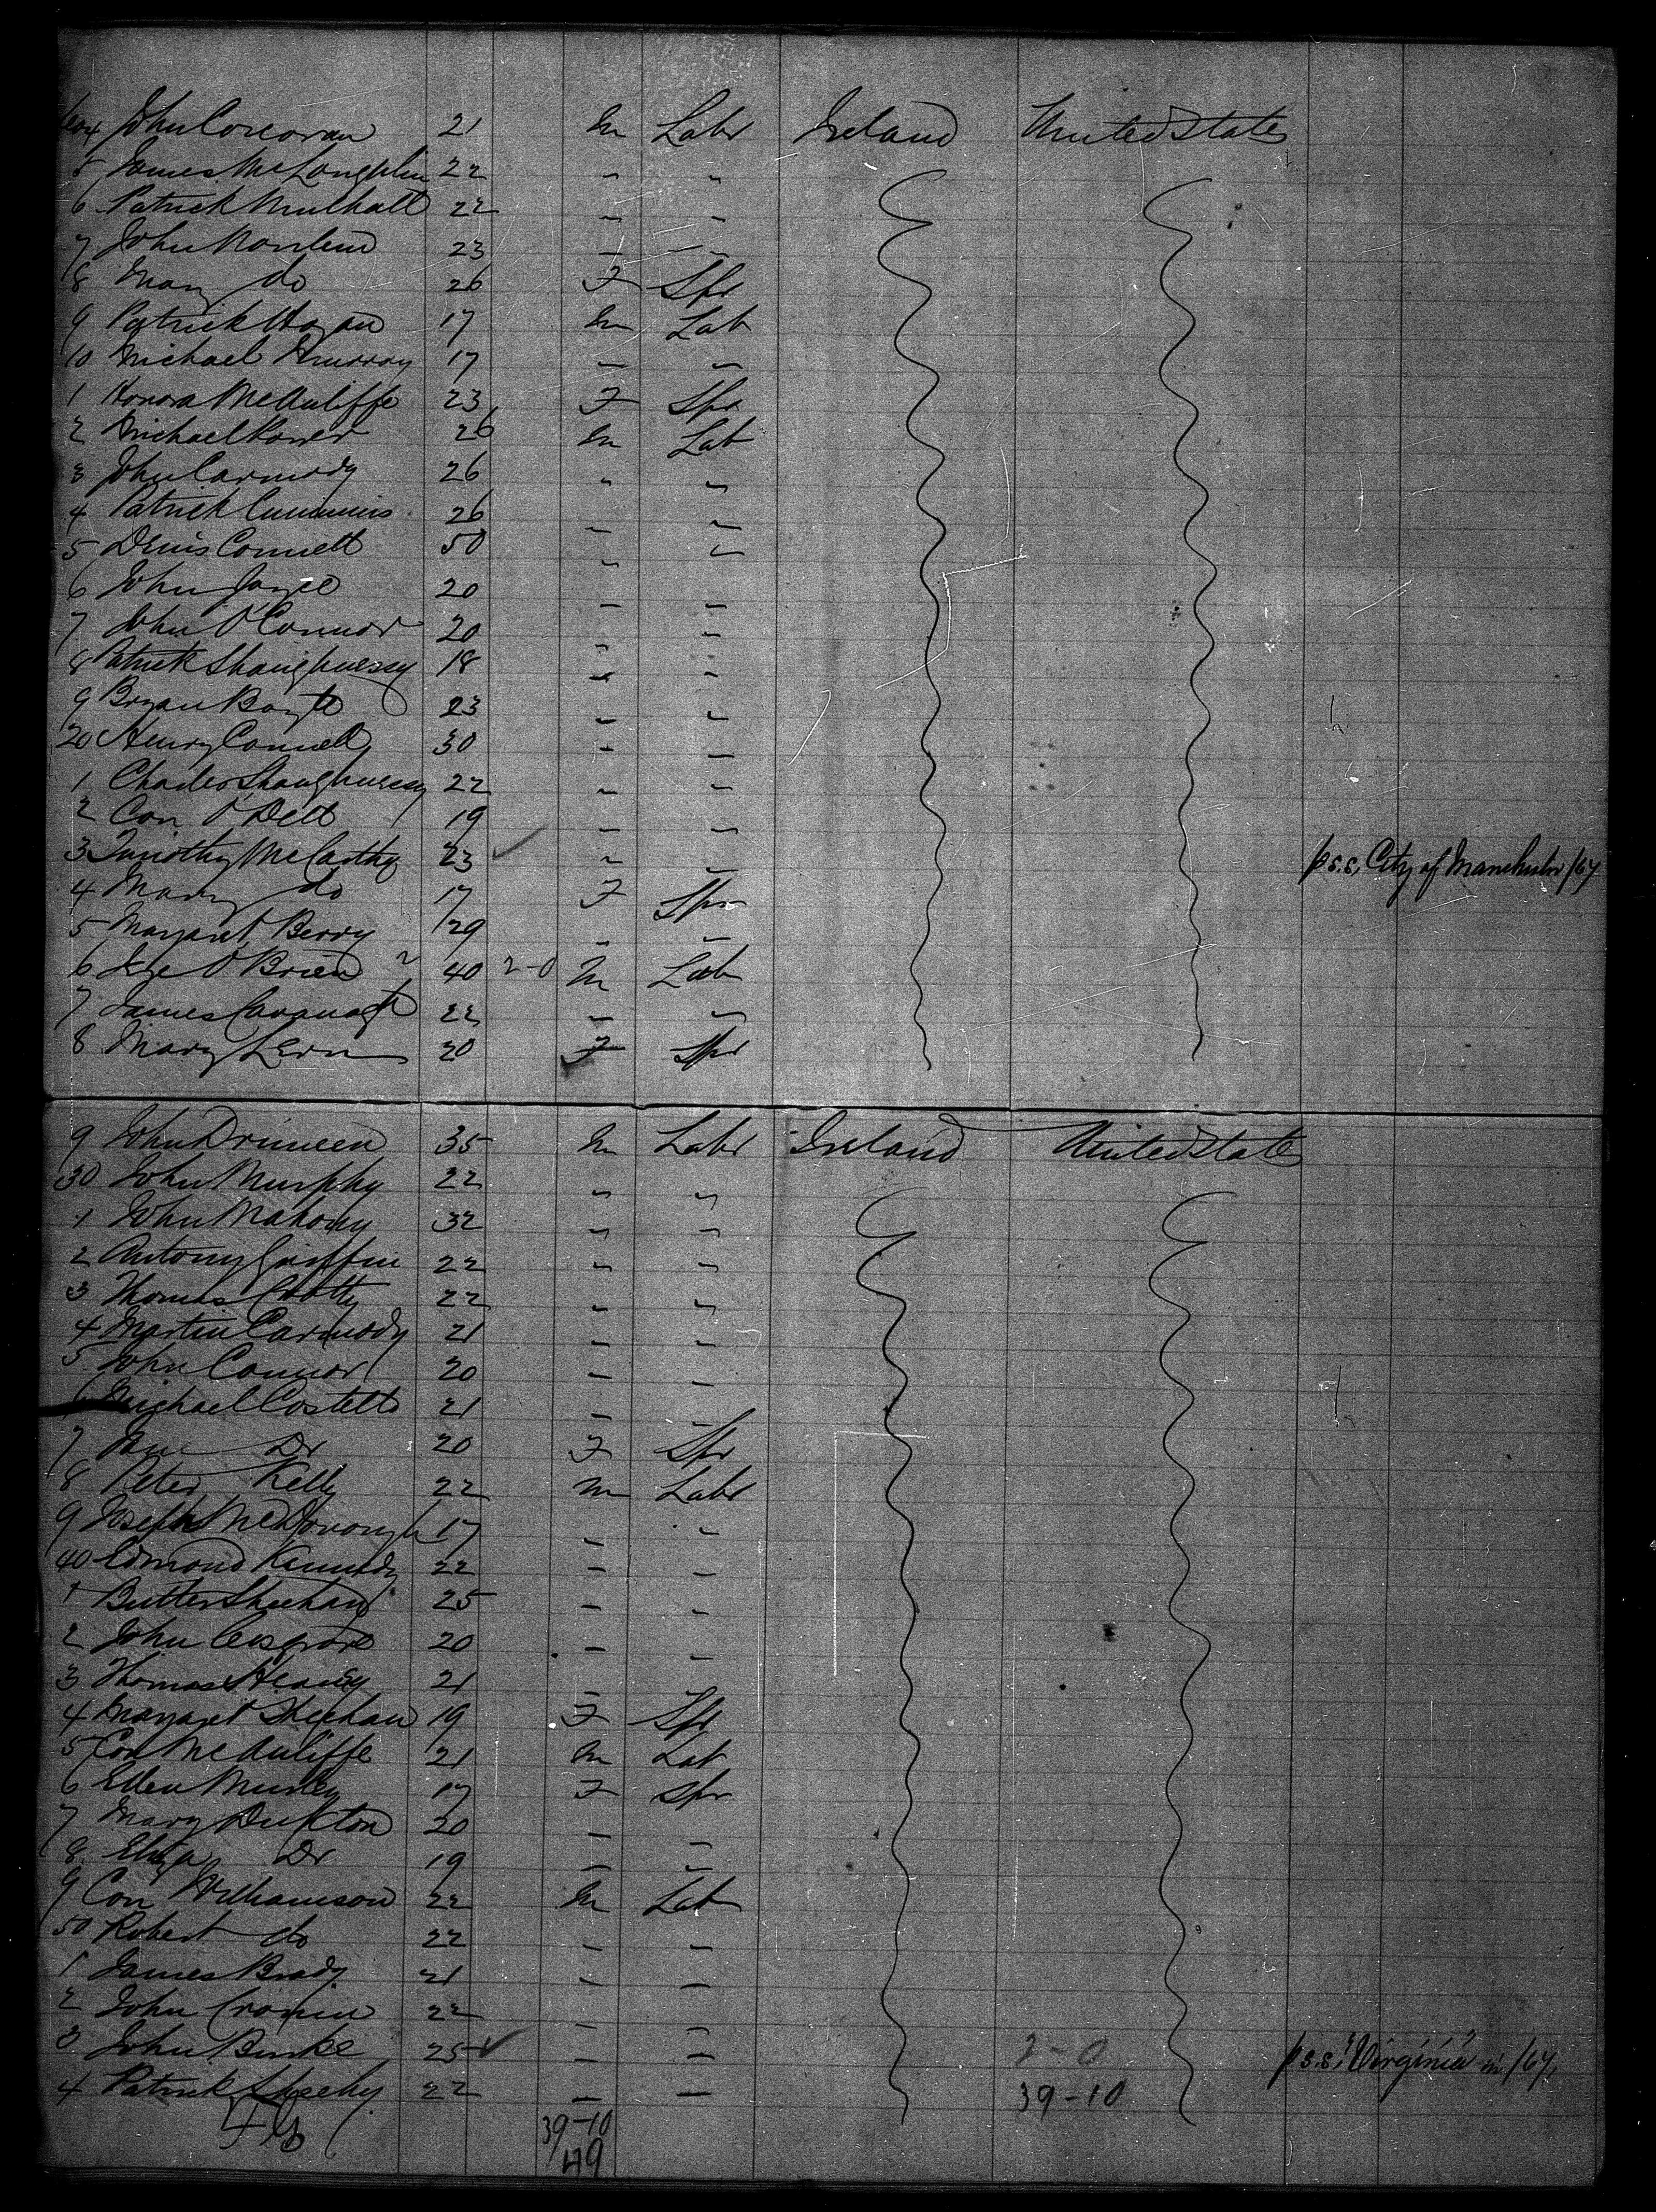 604 John Corcoran 21 m Labr Ireland United States
5 James McLoughlin 22 " "
6 Patrick Mulhall 22 " "
7 John 23 " "
8 Mary do 26 F Spr
9 Patrick Hogan 17 m Lab
10 Michael Murray 17 " "
1 Honora McAuliffe 23 F Spr
2 Michael Power 26 m Lab
3 John Carmody 26 " "
4 Patrick Cummins 26 " "
5 Denis Connell 50 " "
6 John Joyce 20 " "
7 John O'Connor 20 " "
8 Patrick Shaughnessy 18 " "
9 Bryan Boyle 23 " "
20 Henry Connell 30 " "
1 Charles Shaughnessy 22 " "
2 Con O'Dell 19 " "
3 Timothy McCarthy 23 " " p s.s. City of Manchester /67
4 Mary do 17 F Spr
5 Margaret Berry 29 " "
6 O'Brien 40 2-0 m Lab
7 James Cavanagh 22 " "
8 Mary 20 F Spr
9 John Drineen 35 m Labr Ireland United States
30 John Murphy 22 " "
1 John Mahony 32 " "
2 Antony Griffin 22 " "
3 Thomas Crotty 22 " "
4 Martin Carmody 21 " "
5 John Connor 20 " "
6 Michael Costello 21 " "
7 Do 20 F Spr
8 Peter Kelly 22 m Labr
9 Joseph McDonough 17 " "
40 Edmond Kennedy 22 " "
1 Butler Sheehan 25 " "
2 John Cosgrove 20 " "
3 Thomas Heaney 21 " "
4 Margaret Sheehan 19 F Spr
5 Con McAuliffe 21 m Lab
6 Ellen 17 F Spr
7 Mary 20 " "
8 Eliza Do 19 " "
9 Con Williamson 22 m Lab
50 Robert do 22 " "
1 James Brady 21 " "
2 John Cronin 22 " "
3 John Burke 25 " " 2-0 p s.s. "Virginia" in /67
4 Patrick Sheehy 22 " " 39-10
39-10
49